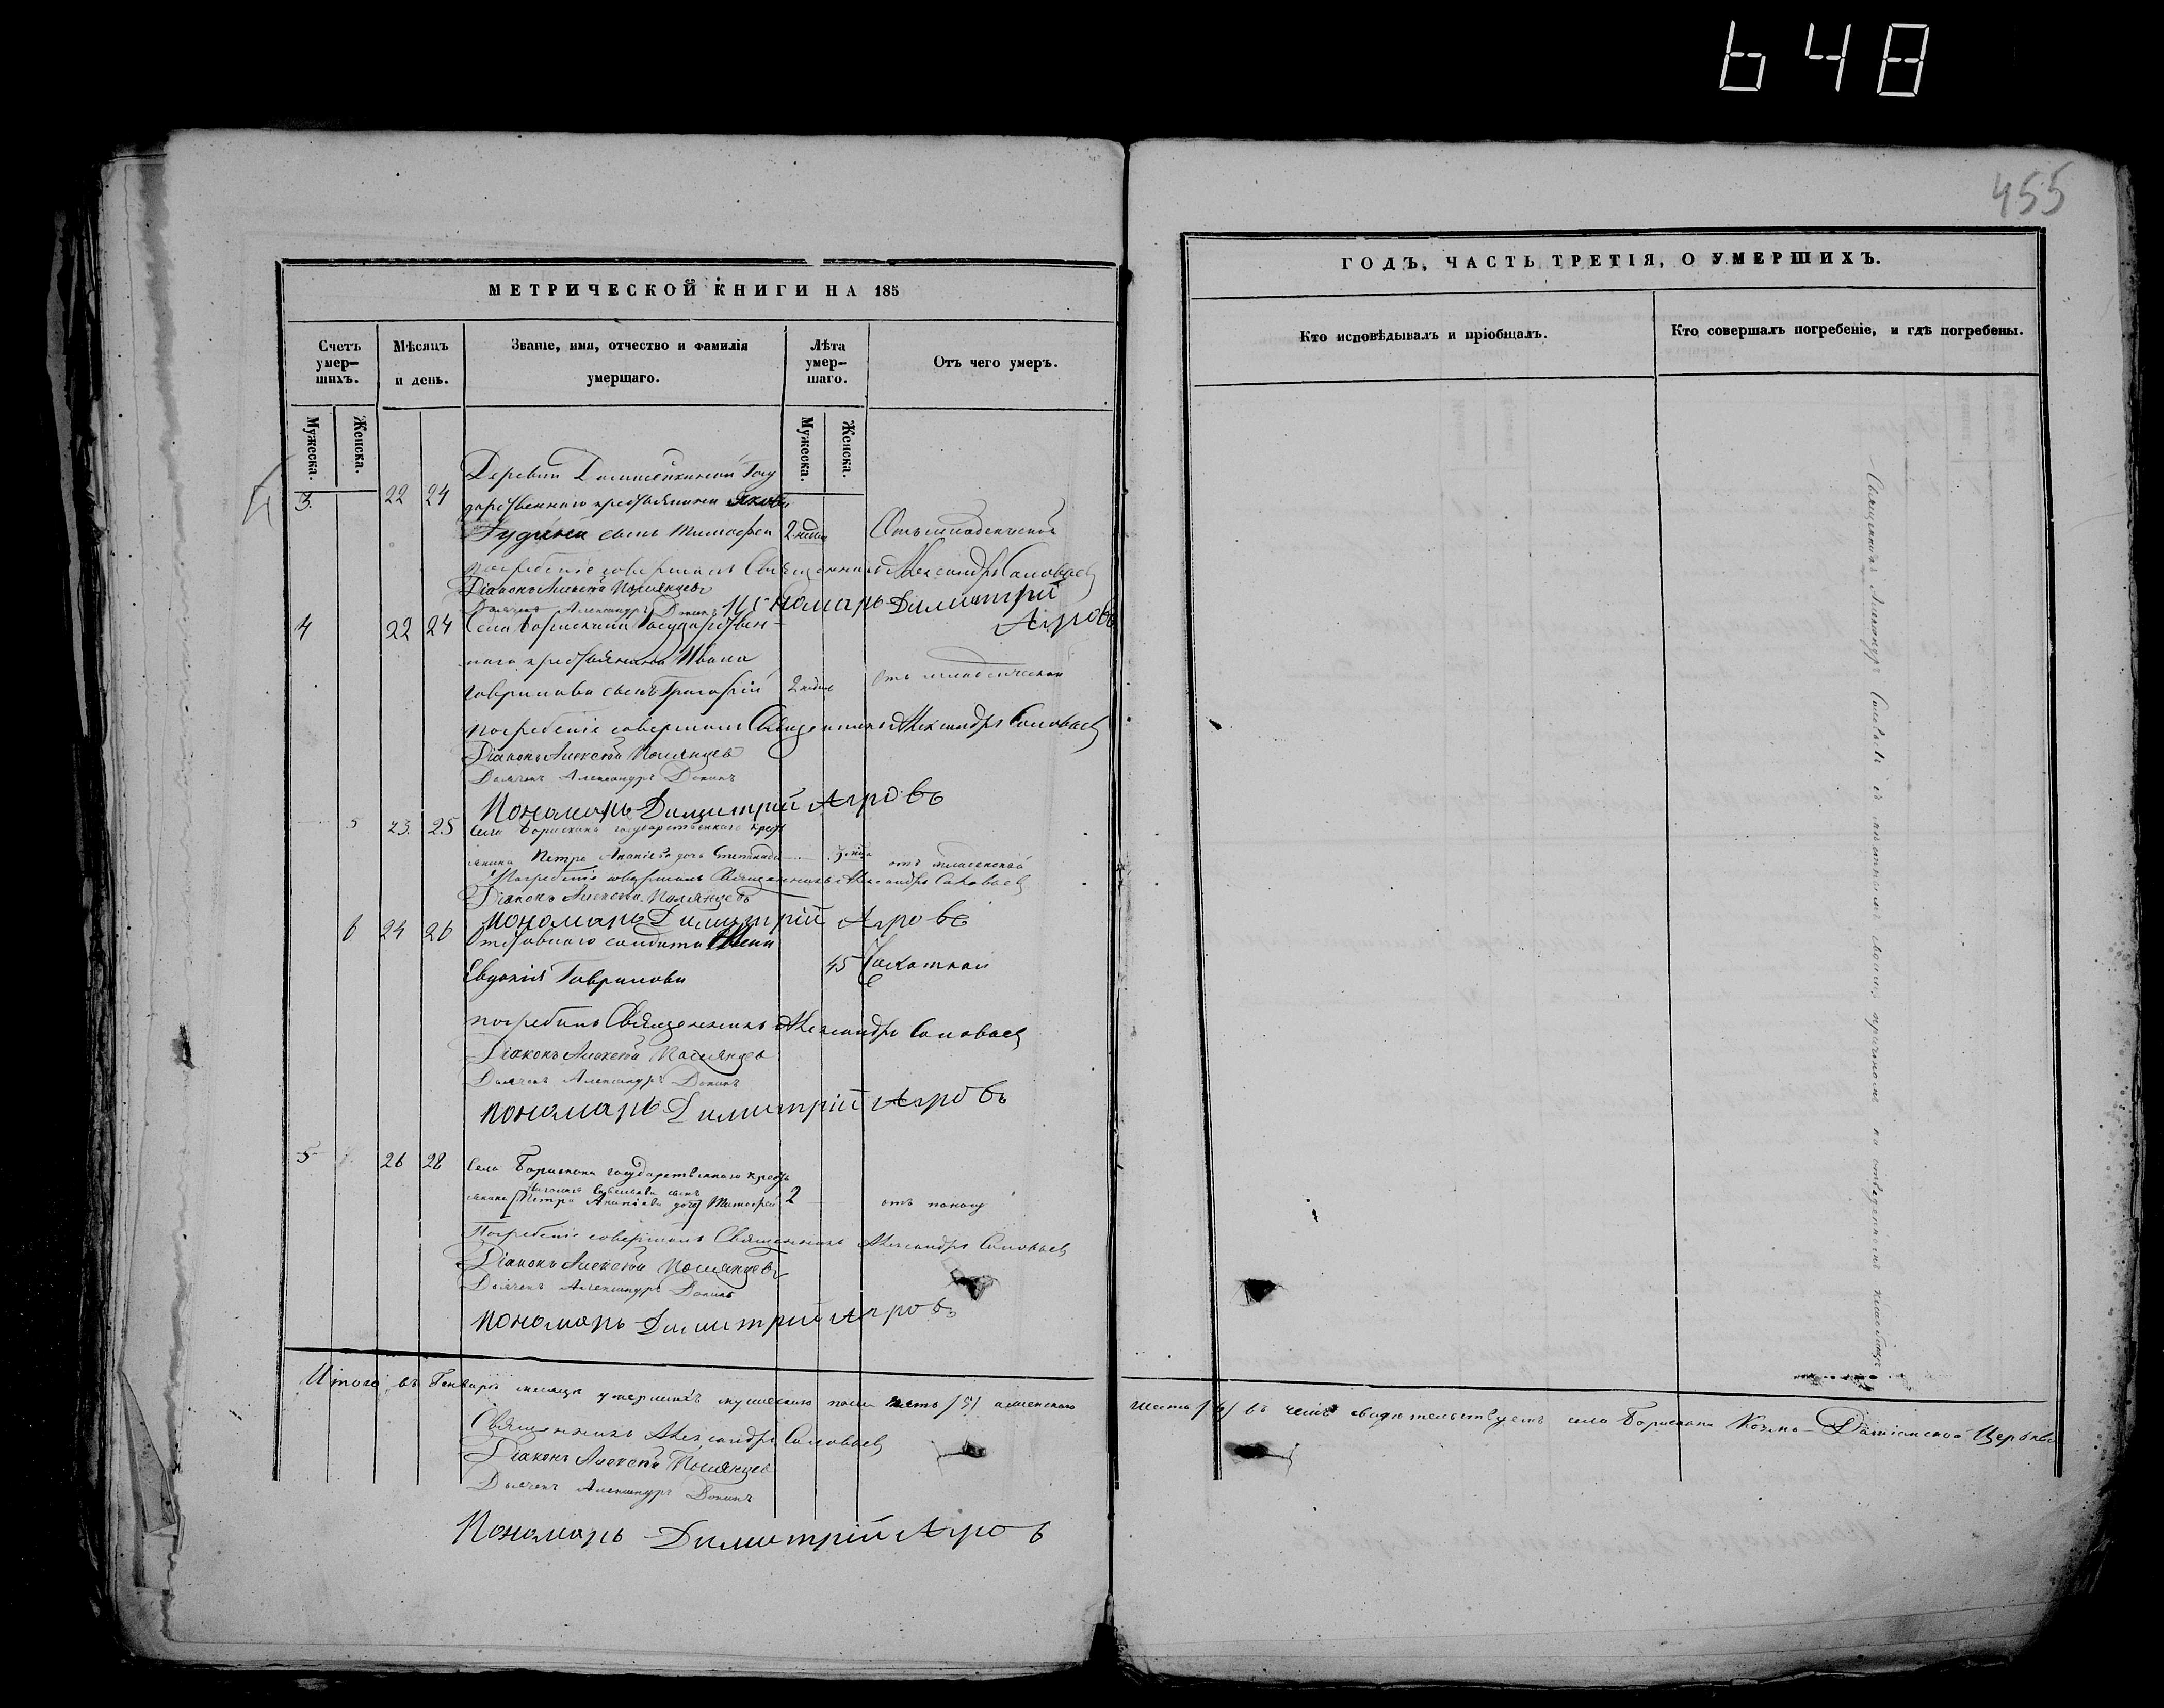 648
455
МЕТРИЧЕСКОЙ КНИГИ НА 185
Счетъ умер-шихъ.
Мѣсяцъ и день.
Званіе, имя, отчество и фамилія умершаго.
Лѣта умер-шаго.
Отъ чего умеръ.
Мужеска.
Женска.
Мужеска.
Женска.
Деревни Госу
3. 22 24 дарственнаго крестьянина Якова
сынъ Тимофей 2 недѣли Отъ младенческой
погребеніе совершалъ Священникъ Александръ Соловьевъ
Діаконъ Алексѣй
Дьячекъ Александръ Пономарь Димитрій
Агровъ
4 22 24 Села Государствен-
наго крестьянина Ивана
Гаврилова сынъ Григорій 2 недѣли Отъ младенческой
погребеніе совершалъ Священникъ Александръ Соловьевъ
Діаконъ Алексѣй
Дьячекъ Александръ
Пономарь Димитрій Агровъ
5 23. 25 Села государственнаго крест
янина Петра Ананіева дочь Степанида отъ
Погребеніе совершалъ Священникъ Александръ Соловьевъ
Діаконъ Алексѣй
Пономарь Димитрій Агровъ
6 24 26 Отставнаго солдата жена
Евдокія Гаврилова 45 Чахоткой
погребалъ Священникъ Александръ Соловьевъ
Діаконъ Алексѣй
Дьячекъ Александръ
Пономарь Димитрій Агровъ
5 26 28 Села государственнаго крестъ
сынъ
янина Петра Ананіева дочь Тимофей 2 отъ поносу
Погребеніе совершалъ Священникъ Александръ Соловьевъ
Діаконъ Алексѣй
Дьячекъ Александръ
Пономарь Димитрій Агровъ
Итого въ Генварѣ мѣсяцѣ умершихъ мужескаго пола пять /5/ а женскаго
Священникъ Александръ Соловьевъ
Діаконъ Алексѣй
Дьячекъ Александръ
Пономарь Димитрій Агровъ
ГОДЪ, ЧАСТЬ ТРЕТІЯ, О УМЕРШИХЪ.
Кто исповѣдывалъ и пріобщалъ.
Кто совершалъ погребеніе, и гдѣ погребены.
Священникъ Александръ Соловьевъ съ своимъ причтомъ на отведенномъ кладбищѣ
шесть /6/ въ чемъ свидѣтельствуемъ села Козмо-Даміанской Церкви